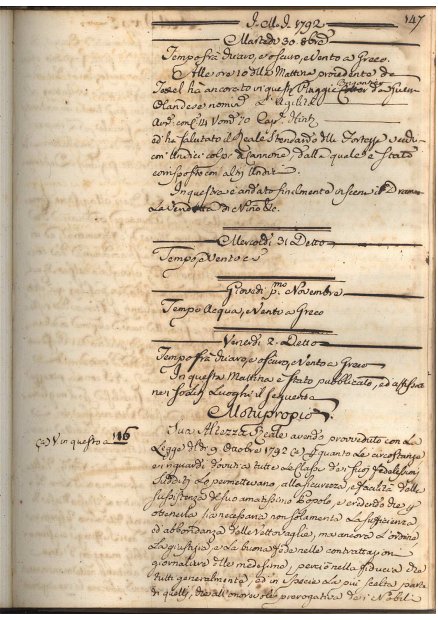 J. M. J. 1792
147
Martedì 30. Obre
Tempo frà chiaro, e oscuro, e Vento a Greco.
Alle ore 10 della Mattina procedente da
hà ancorato in questa Piaggia Brigantino da Guerra
Olandese nomin°
Com. 14 Uom. 70 Cap.
ed hà salutato il Reale Stendardo della Fortezza
con undici colpi di Cannone, dalla quale è stato
corrisposto con altri Undici.
In questa è andato finalmente in scena il Dramma
La Vendetta di Nino &c.
Mercoldì 31 Detto
Tempo, e Vento
Giovedì pmo Novembre
Tempo Acqua, e Vento a Greco
Venerdì 2. Detto
Tempo frà chiaro, e oscuro, e Vento a Greco
In questa Mattina è stato pubblicato, ed affisso
nei soliti Luoghi il seguente
Motuproprio
(a) V. in questo a 116
Sua Altezza Reale avendo proveduto con La
Legge de' 9 Ottobre 1792 (a) quanto Le circostanze
e i riguardi dovuti a tutte Le Classi dei suoi fedelissimi
Sudditi Lo permettevano, alla sicurezza, e facilità delle
sussistenza del suo amatissimo Popolo, e vedendo che p
ottenerla sia necessaria non solamente La sufficienza
ed abbondanza delle Vettovaglie, ma ancora l'ordine
La giustizia, e La buona fede nelle contrattazioni
giornaliere delle medesime, perciò nella fiducia che
tutti generalmente, ed in specie La più scelta parte
di quelli, che all'onorevole prerogativa dei Nobili